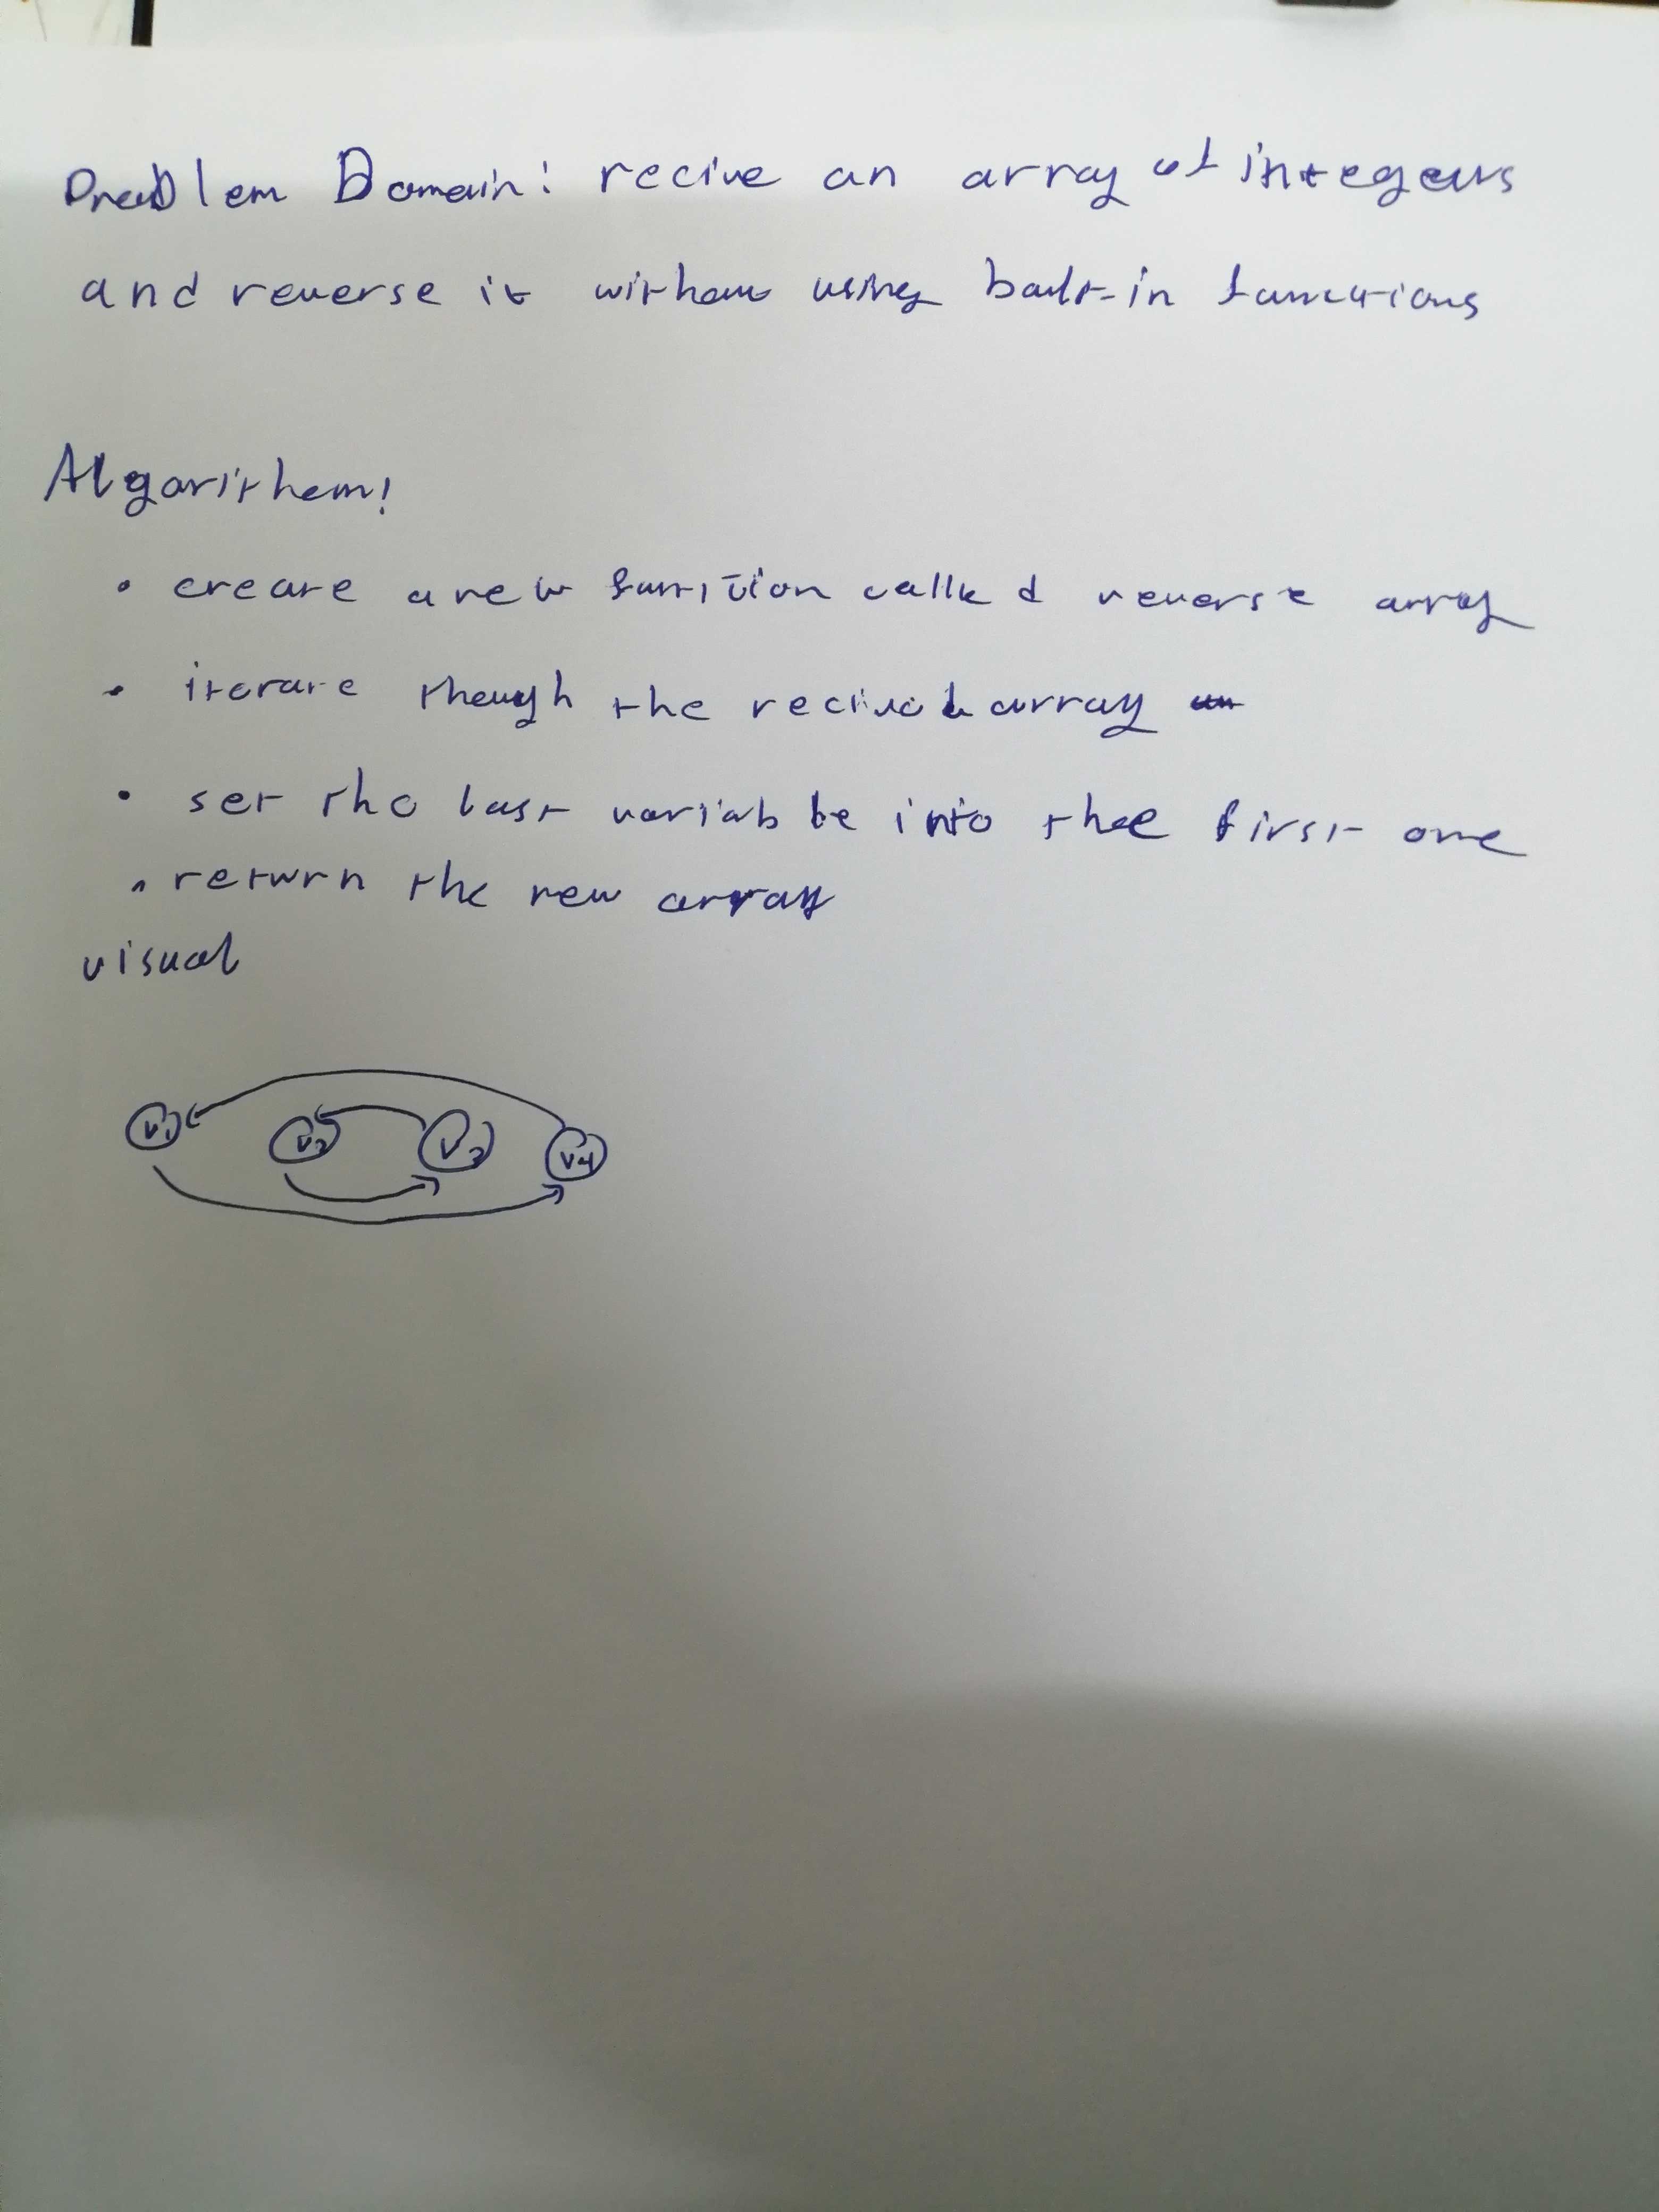 Problem Domain: recive an array of integers
and reverse it without using built-in functions
Algorithem:
• create a new function called reverse array
• iterate though the recived array
• set the last variable into thee first one
• return the new array
visual
V1 V2 V3 V4